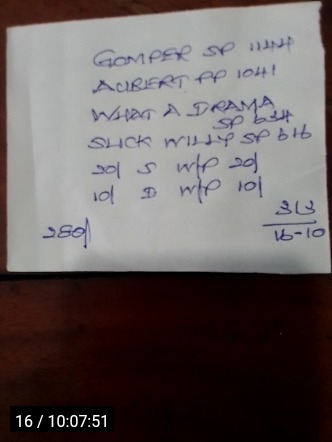 GOMPER SP 1144
AUBERT PP 1041
WHAT A DRAMA
SP 634
SLICK WILLY SP 616
20/ S W/P 20/
10/ D W/P 10/
280/
16-10
16 / 10:07:51